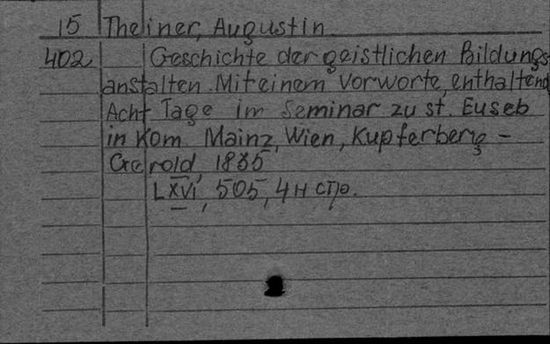 15 Theliner, Augustin
402 Geschichte der geistlichen Bildungs
anstalten. Mit einem Vorworte, enthaltend
Acht Tage im Seminar zu st. Euseb
in Kom. Mainz, Wien, Kupferberg –
Gerold, 1835
LXVI, 505, 4 н стр.